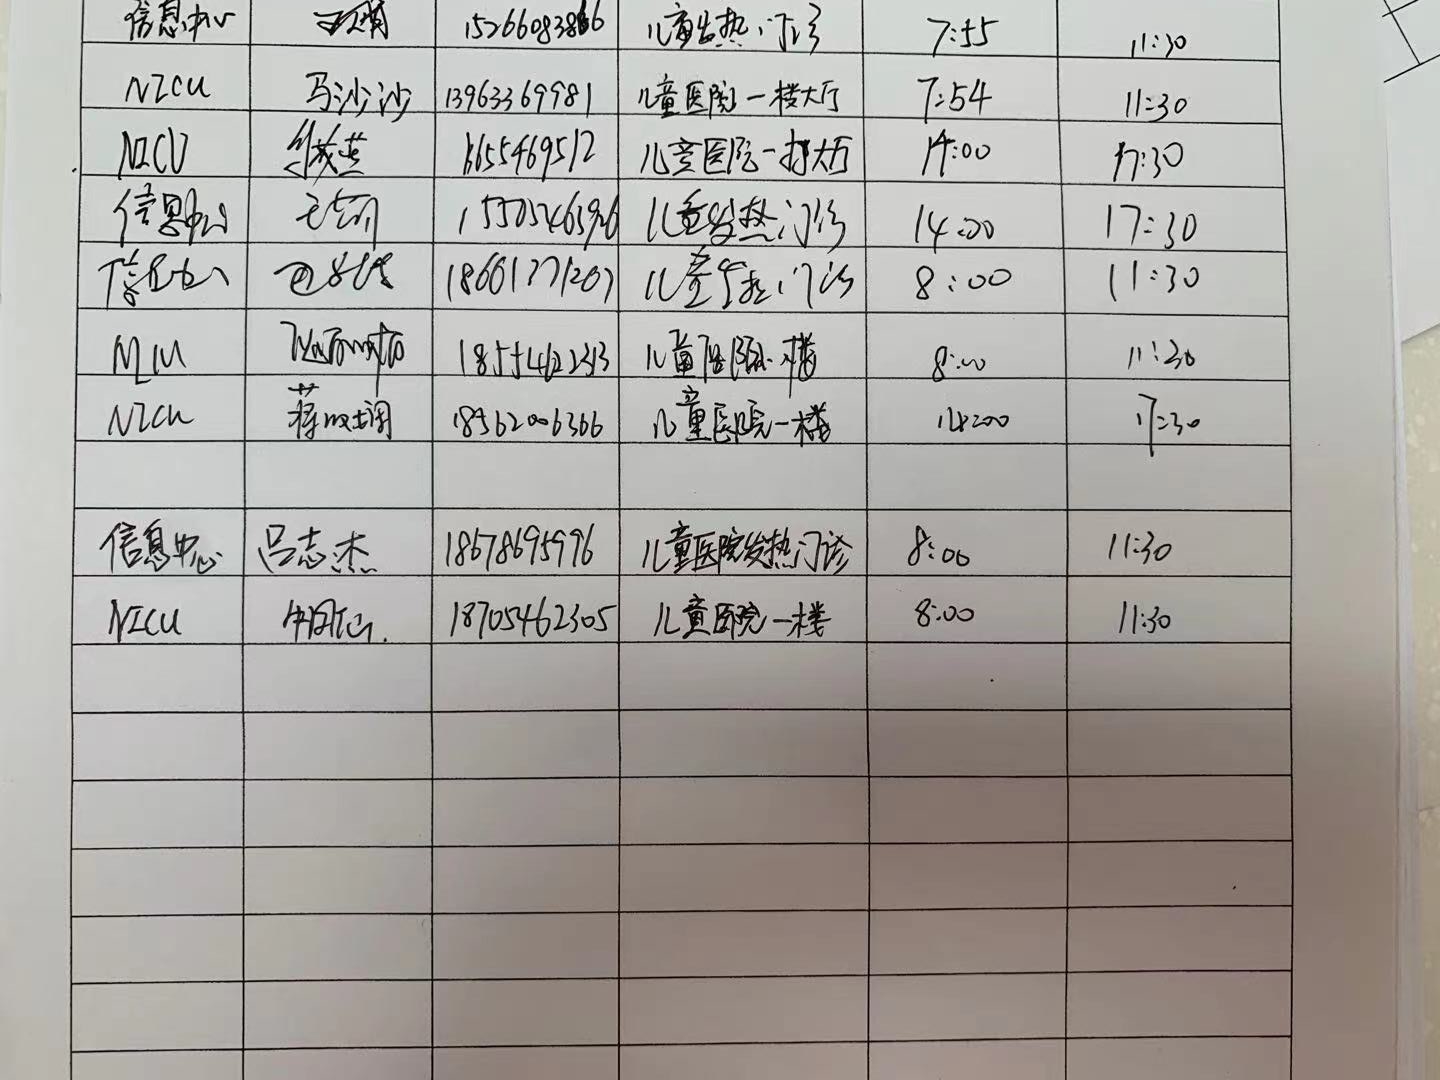 信息中心 15266083866 儿童发热门诊 7:55 11:30
NICU 马沙沙 13963369981 儿童医院一楼大厅 7:54 11:30
NICU 儿童医院一楼大厅 14:00 17:30
信息中心 儿童发热门诊 14:00 17:30
信息中心 18661771207 儿童发热门诊 8:00 11:30
NICU 儿童医院一楼 8:00 11:30
NICU 18562006366 儿童医院一楼 14:00 17:30
信息中心 吕志杰 18678695996 儿童医院发热门诊 8:00 11:30
NICU 18705462305 儿童医院一楼 8:00 11:30